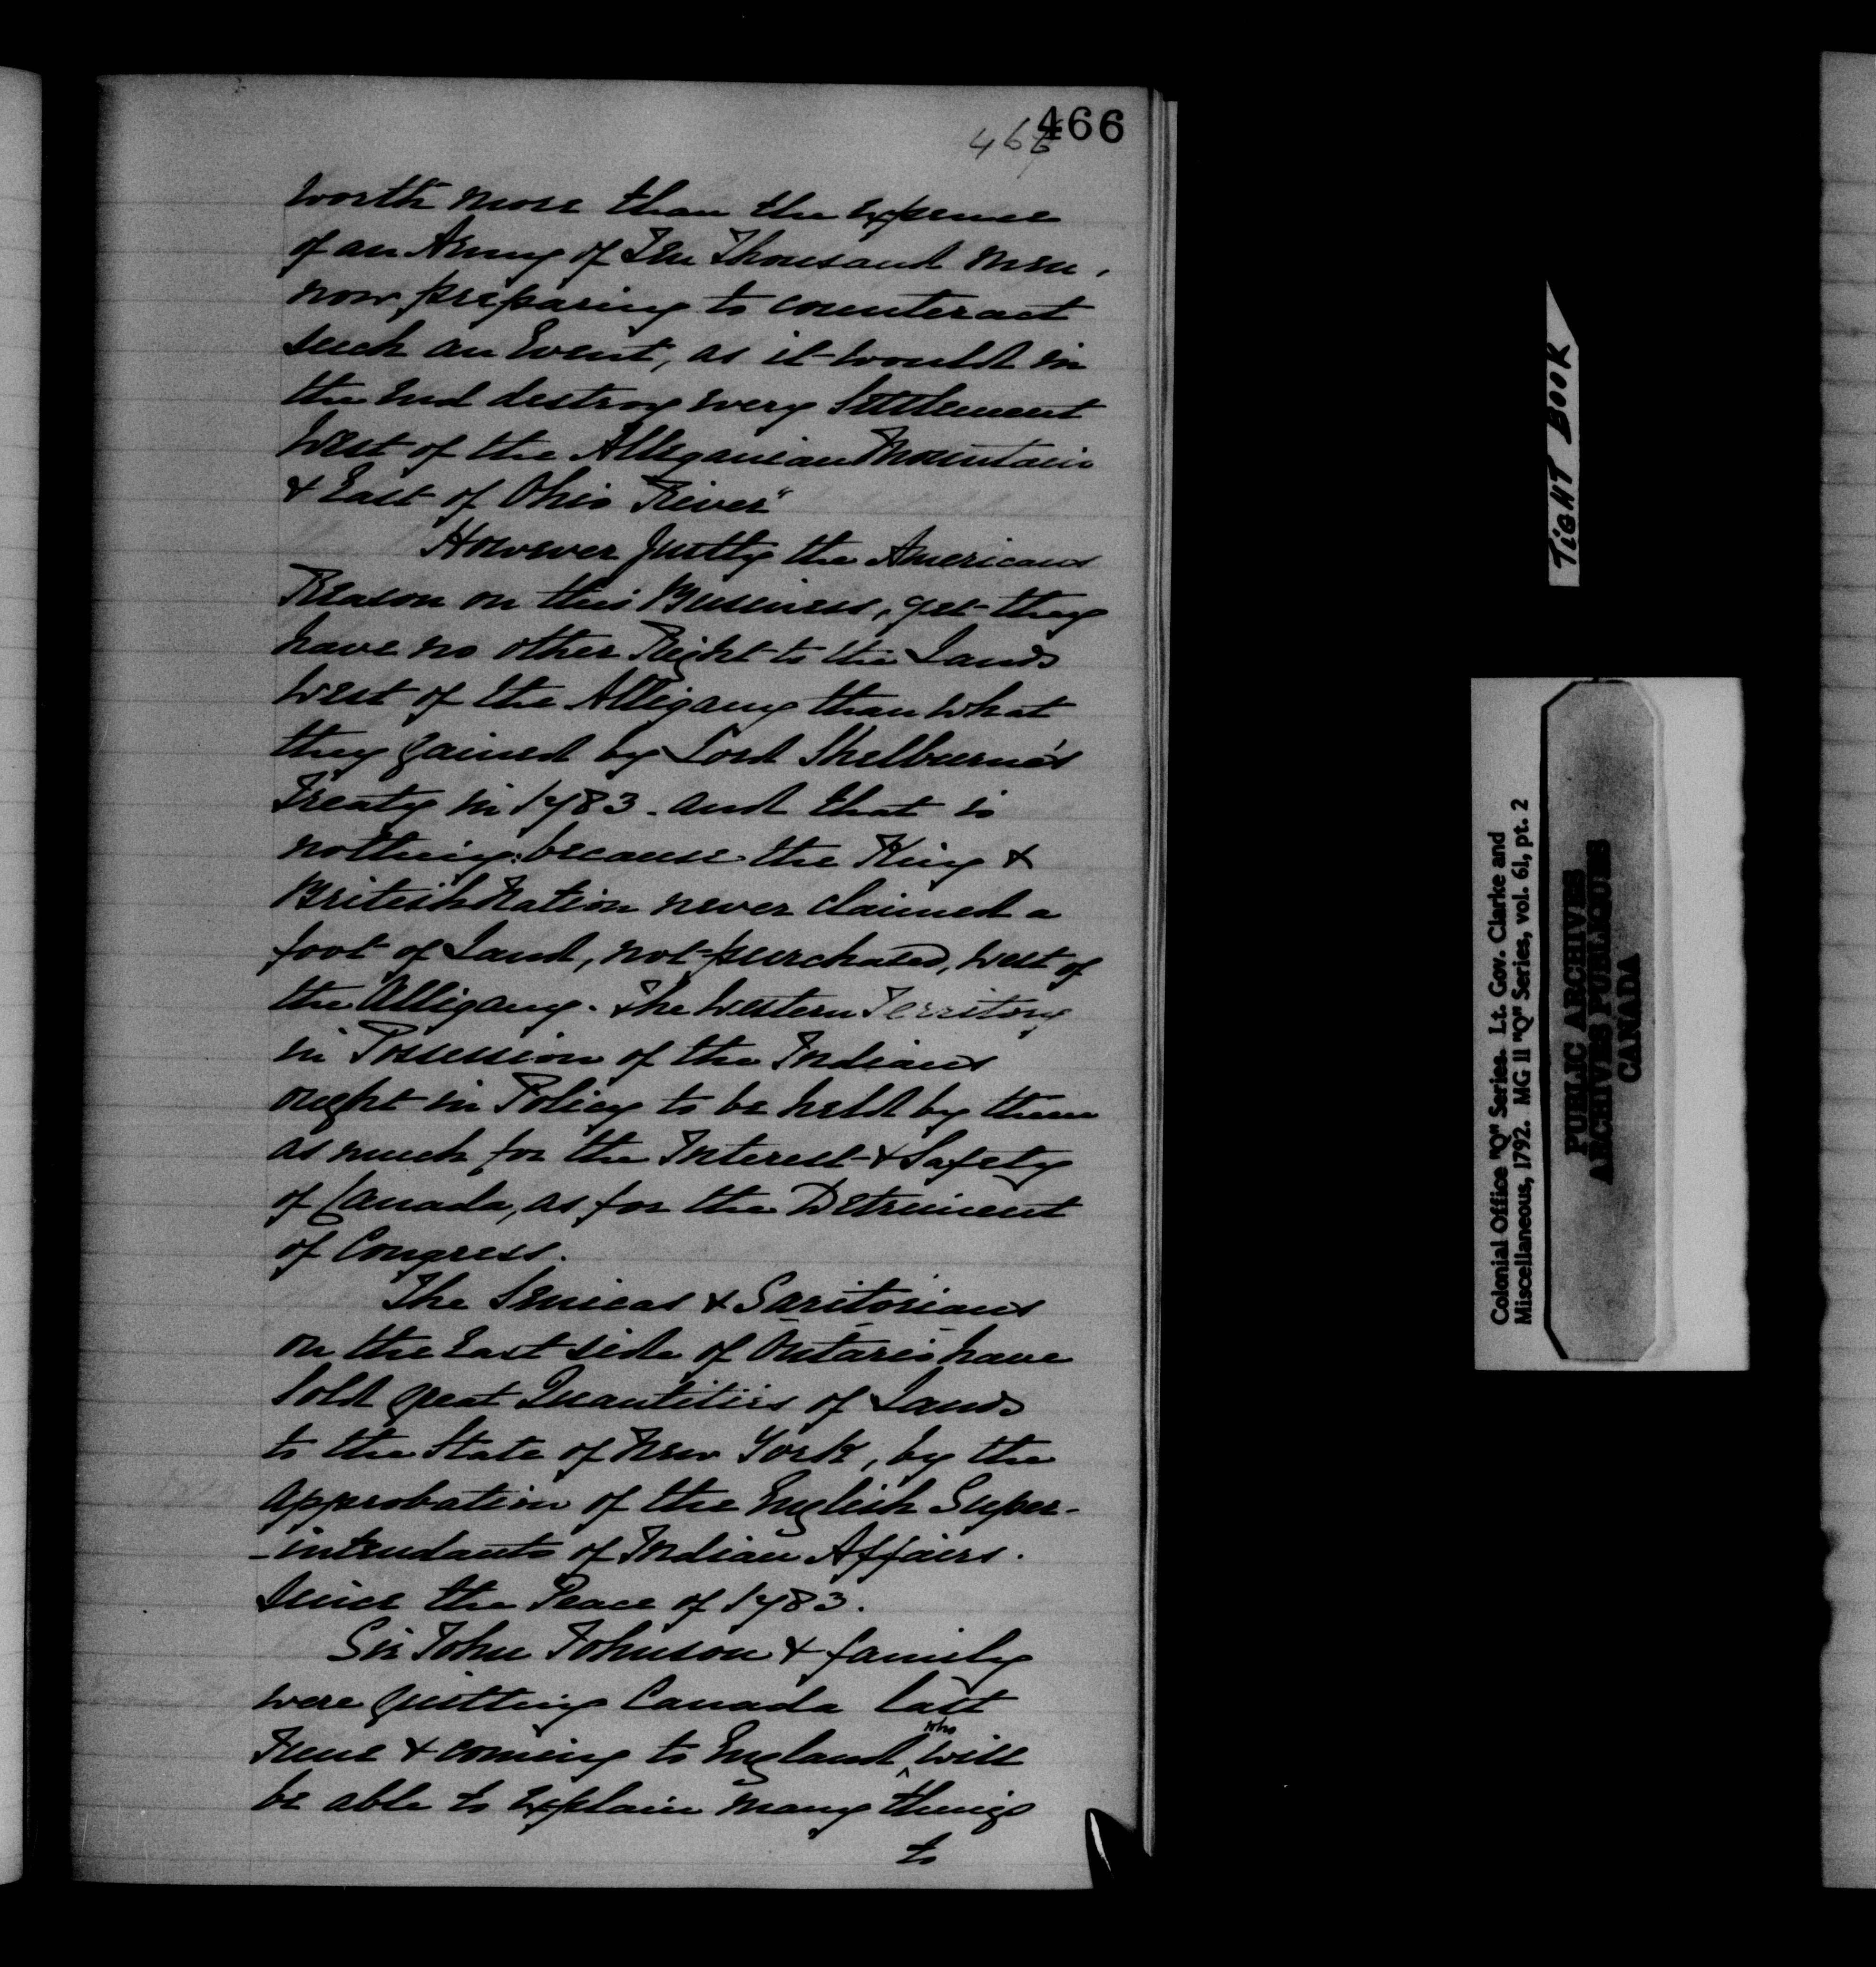 466
466
worth more than the expense
of an Army of Ten Thousand men,
now preparing to counteract
such an Event, as it would in
the end destroy every Settlement
West of the Alleganian Mountain
& East of Ohio River"
However justly the Americans
Reason on this Business, yet they
have no other Right to the Lands
West of the Alligany than what
they gained by Lord Shelburne's
Treaty in 1783. and that is
nothing: because the King &
British Nation never claimed a
foot of Land, not purchased, West of
the Alligany. The Western Territory
in Possession of the Indians
ought in Policy to be held by them
as much for the Interest & Safety
of Canada, as for the Detriment
of Congress.
The Senicas & Saritorians
on the East side of Ontario have
sold great Quantities of Lands
to the State of New York, by the
approbation of the English Super-
-intendants of Indian Affairs.
since the Peace of 1783.
Sir John Johnson & family
were quitting Canada last
June & coming to England who will
be able to explain many things
to
TIGHT BOOK
Colonial Office "Q" Series. Lt. Gov. Clarke and
Miscellaneous, 1792. MG 11 "Q" Series, vol. 61, pt. 2
PUBLIC ARCHIVES
ARCHIVES PUBLIQUES
CANADA